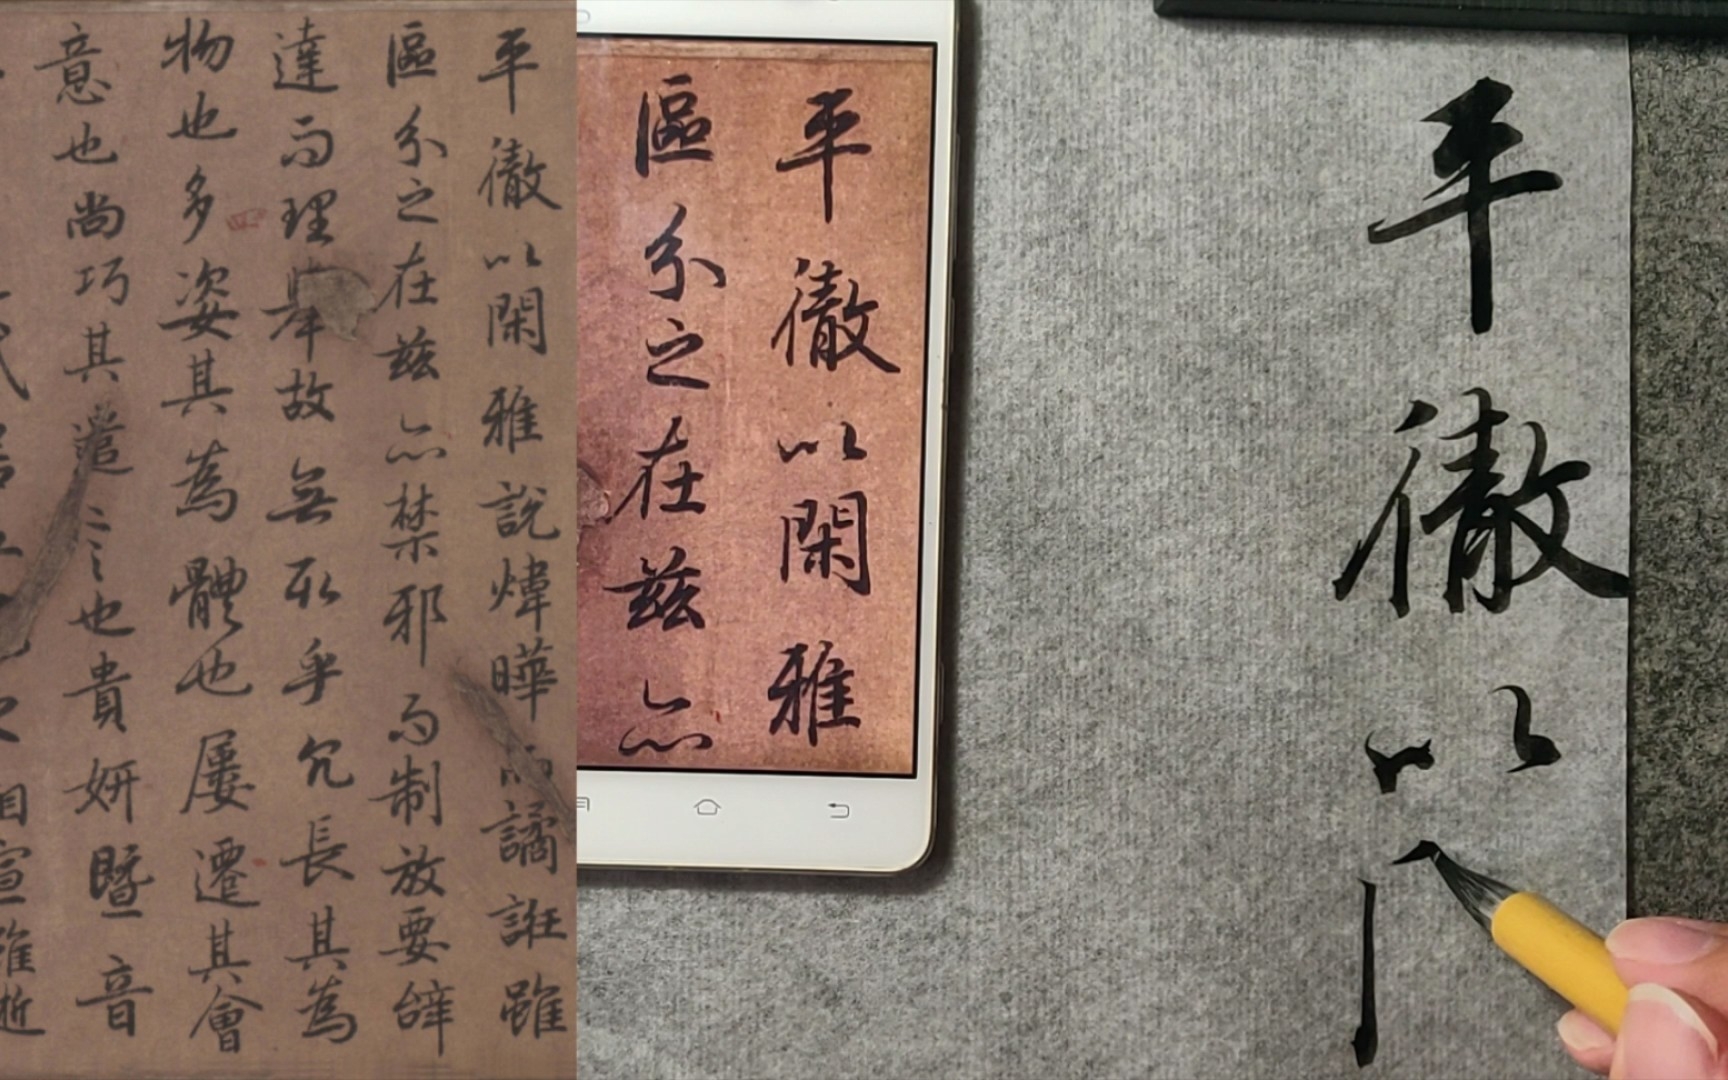 平徹以閑雅說煒曄而譎誑雖
區分之在茲亦禁邪而制放要辝
達而理舉故無取乎冗長其為
物也多姿其為體也屢遷其會
意也尚巧其遣言也貴妍暨音
宣雖逝
平徹以閑雅
區分之在茲亦
平徹以